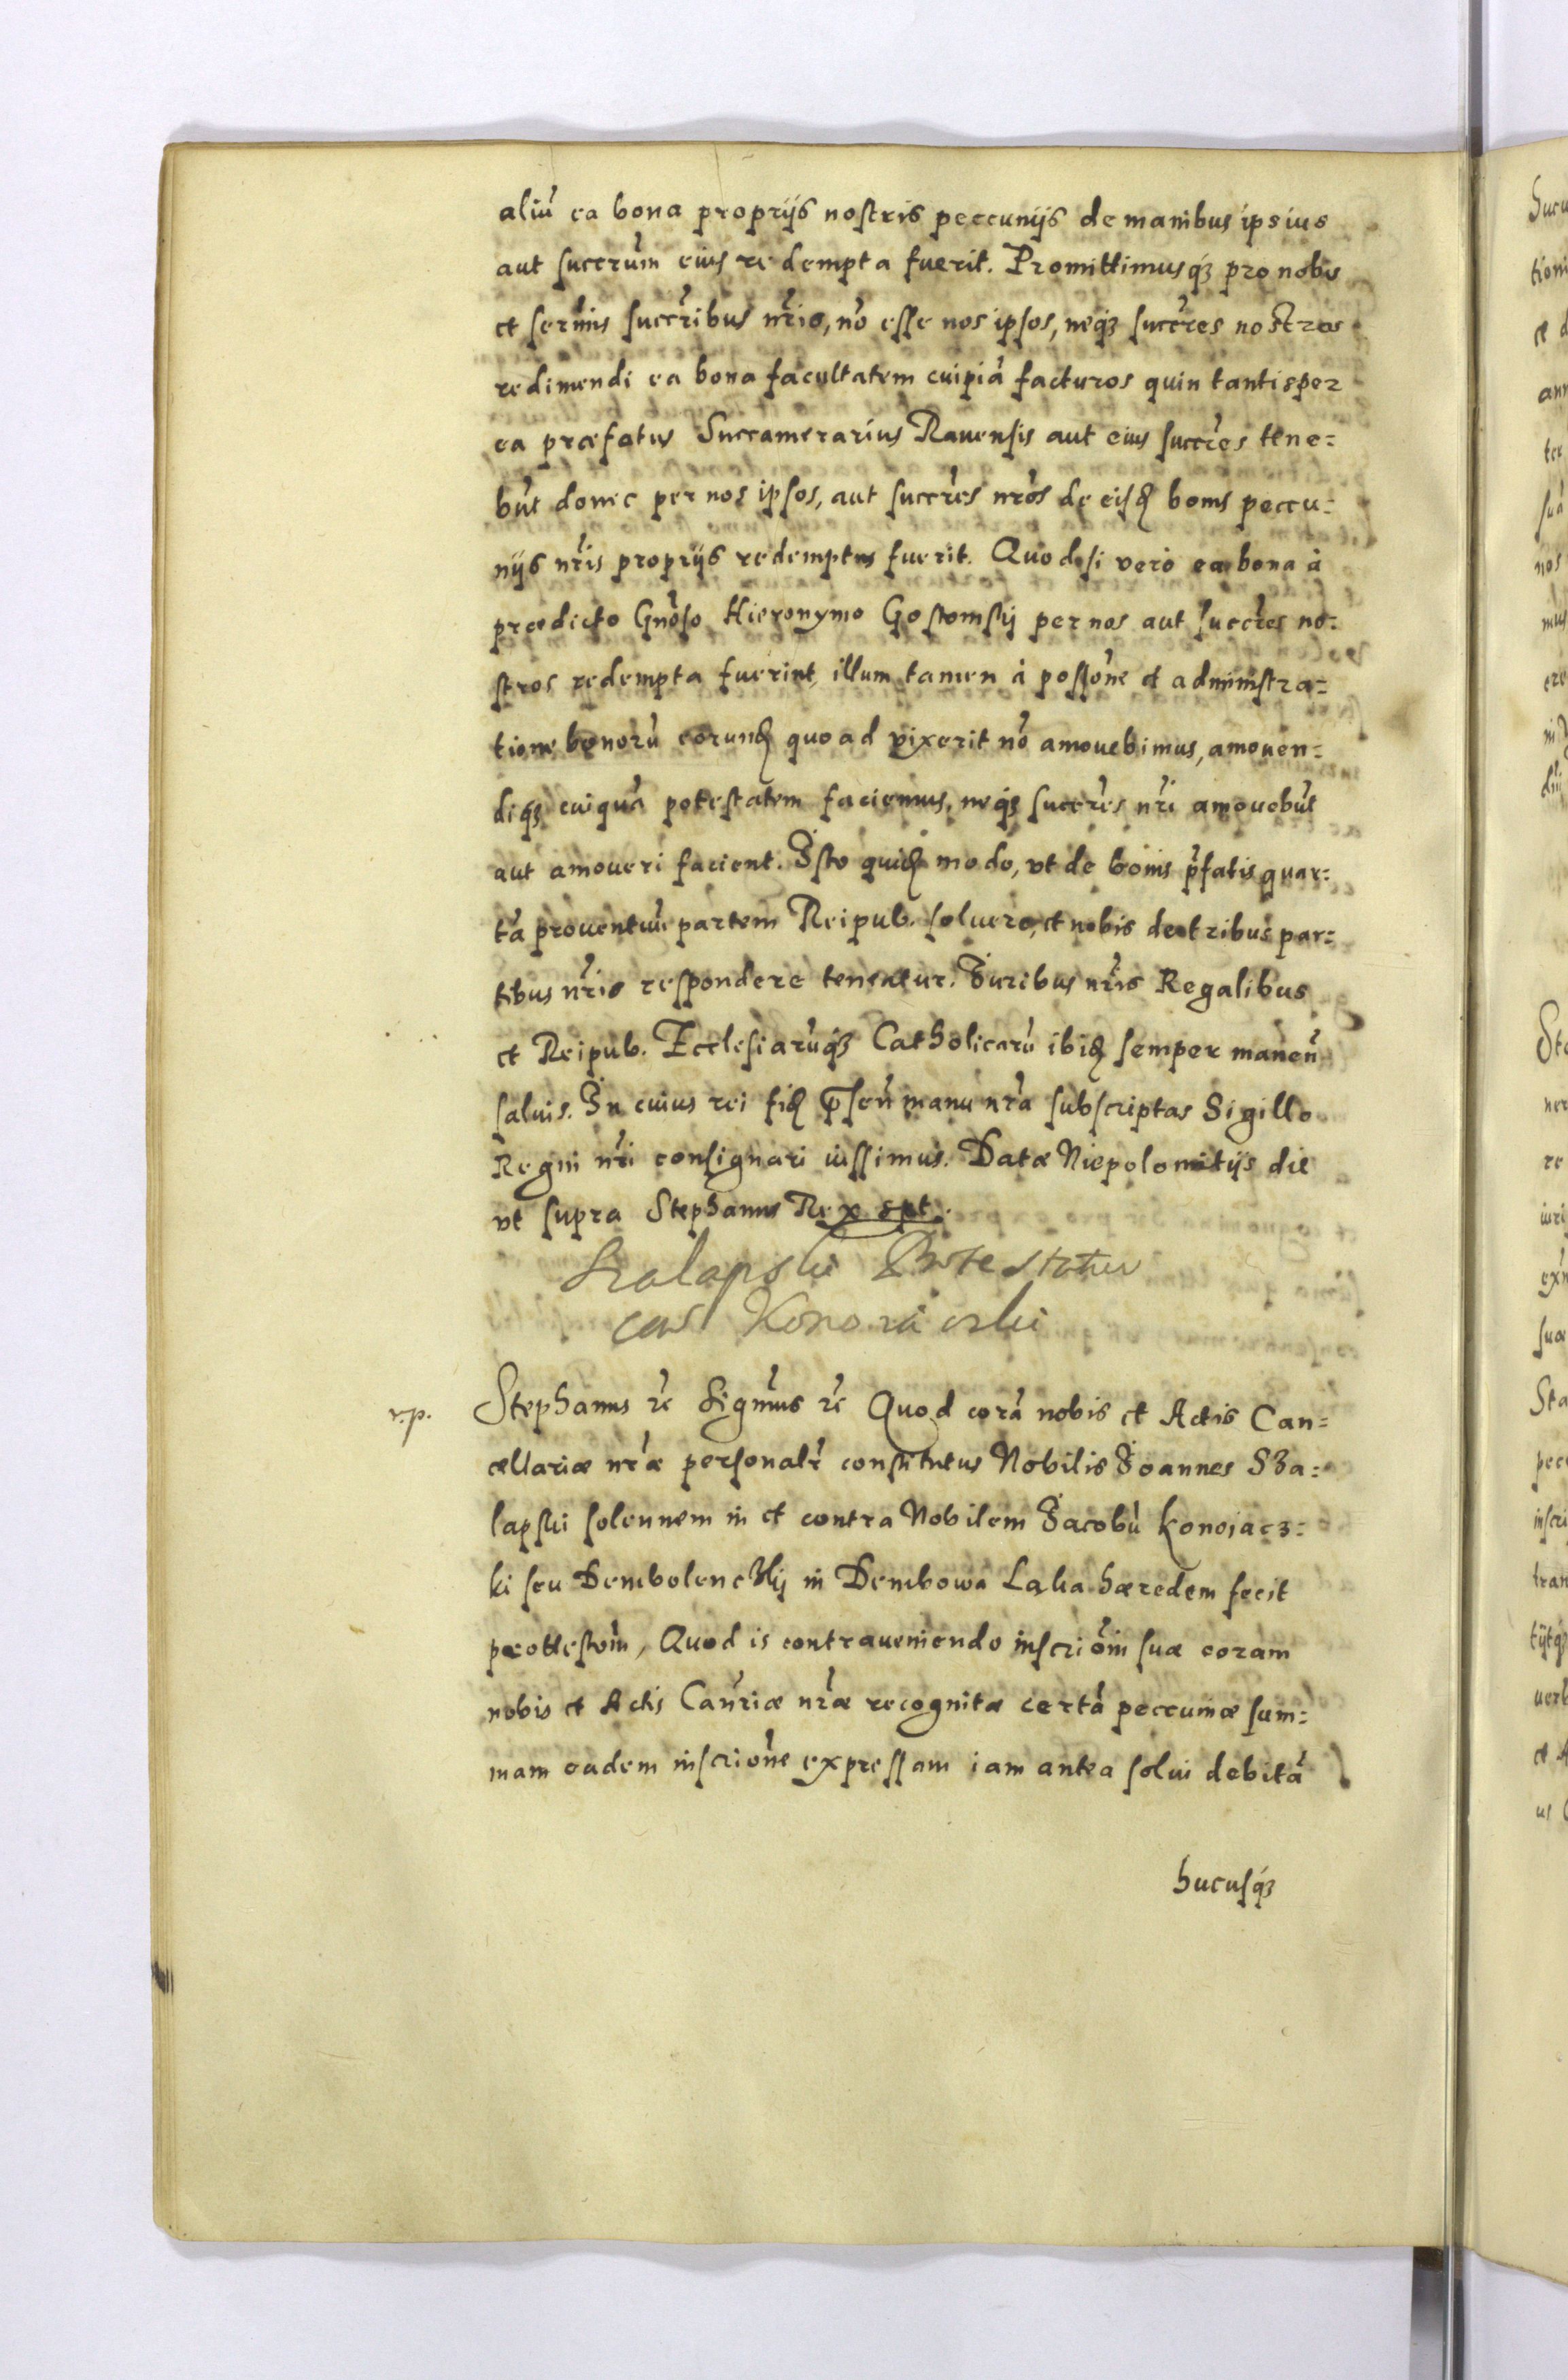 aliũ ea bona proprijs nostris peccunijs de manibus ipsius
aut succrũm eius redempta fuerit. Promittimusq́ꝫ pro nobis
et serm̃is succr̃ibus nr̃is, nõ esse nos ipsos, neq́ꝫ succr̃es nostros
redimendi ea bona facultatem cuipiã facturos quin tantisper
ea præfatus Succamerarius Rauensis aut eius succr̃es tene=
bũt donec per nos ipsos, aut succr̃es nr̃os de eisđ bonis peccu=
nijs nr̃is proprijs redemptus fuerit. Quodsi verò ea bona à
prædicto Gñoso Hieronymo Gostomskij per nos aut succr̃es no=
stros redempta fuerint, illum tamen à possõne et administra=
tione bonorũ eorunđ quoad vixerit nõ amouebimus, amouen=
diq́ꝫ cuiquã potestatem faciemus, neq́ꝫ succr̃es nr̃i amouebũt
aut amoueri facient. Isto quiđ modo, vt de bonis p̃fatis quar=
tã prouentuũ partem Reipub. soluere, et nobis de tribus par=
tibus nr̃is respondere teneatur. Iuribus nr̃is Regalibus
et Reipub. Ecclesiarũq́ꝫ Catholicarũ ibiđ semper maneñ
saluis. In cuius rei fiđ p̃señ manu nr̃a subscriptas Sigillo
Regni nr̃i consignari iussimus. Datæ Niepolomitijs die
vt supra Stephanus Rex spt.
Szalapski Protestatur
con Konoiacski
r.p.
Stephanus r̃c Signm̃us r̃c Quod corã nobis et Actis Can=
cellariæ nr̃æ personalr̃ constitutus Nobilis Ioannes Sza=
lapski solennem in et contra Nobilem Iacobũ Konoiacz=
ki seu Dembolenczkij in Dembowa Laka hæredem fecit
prottestom̃, Quod is contraueniendo inscriõni suæ coram
nobis et Actis Cañriæ nr̃æ recognitæ certã peccuniæ sum=
mam eadem inscriõne expressam iam antea solui debitã
hucusq́ꝫ